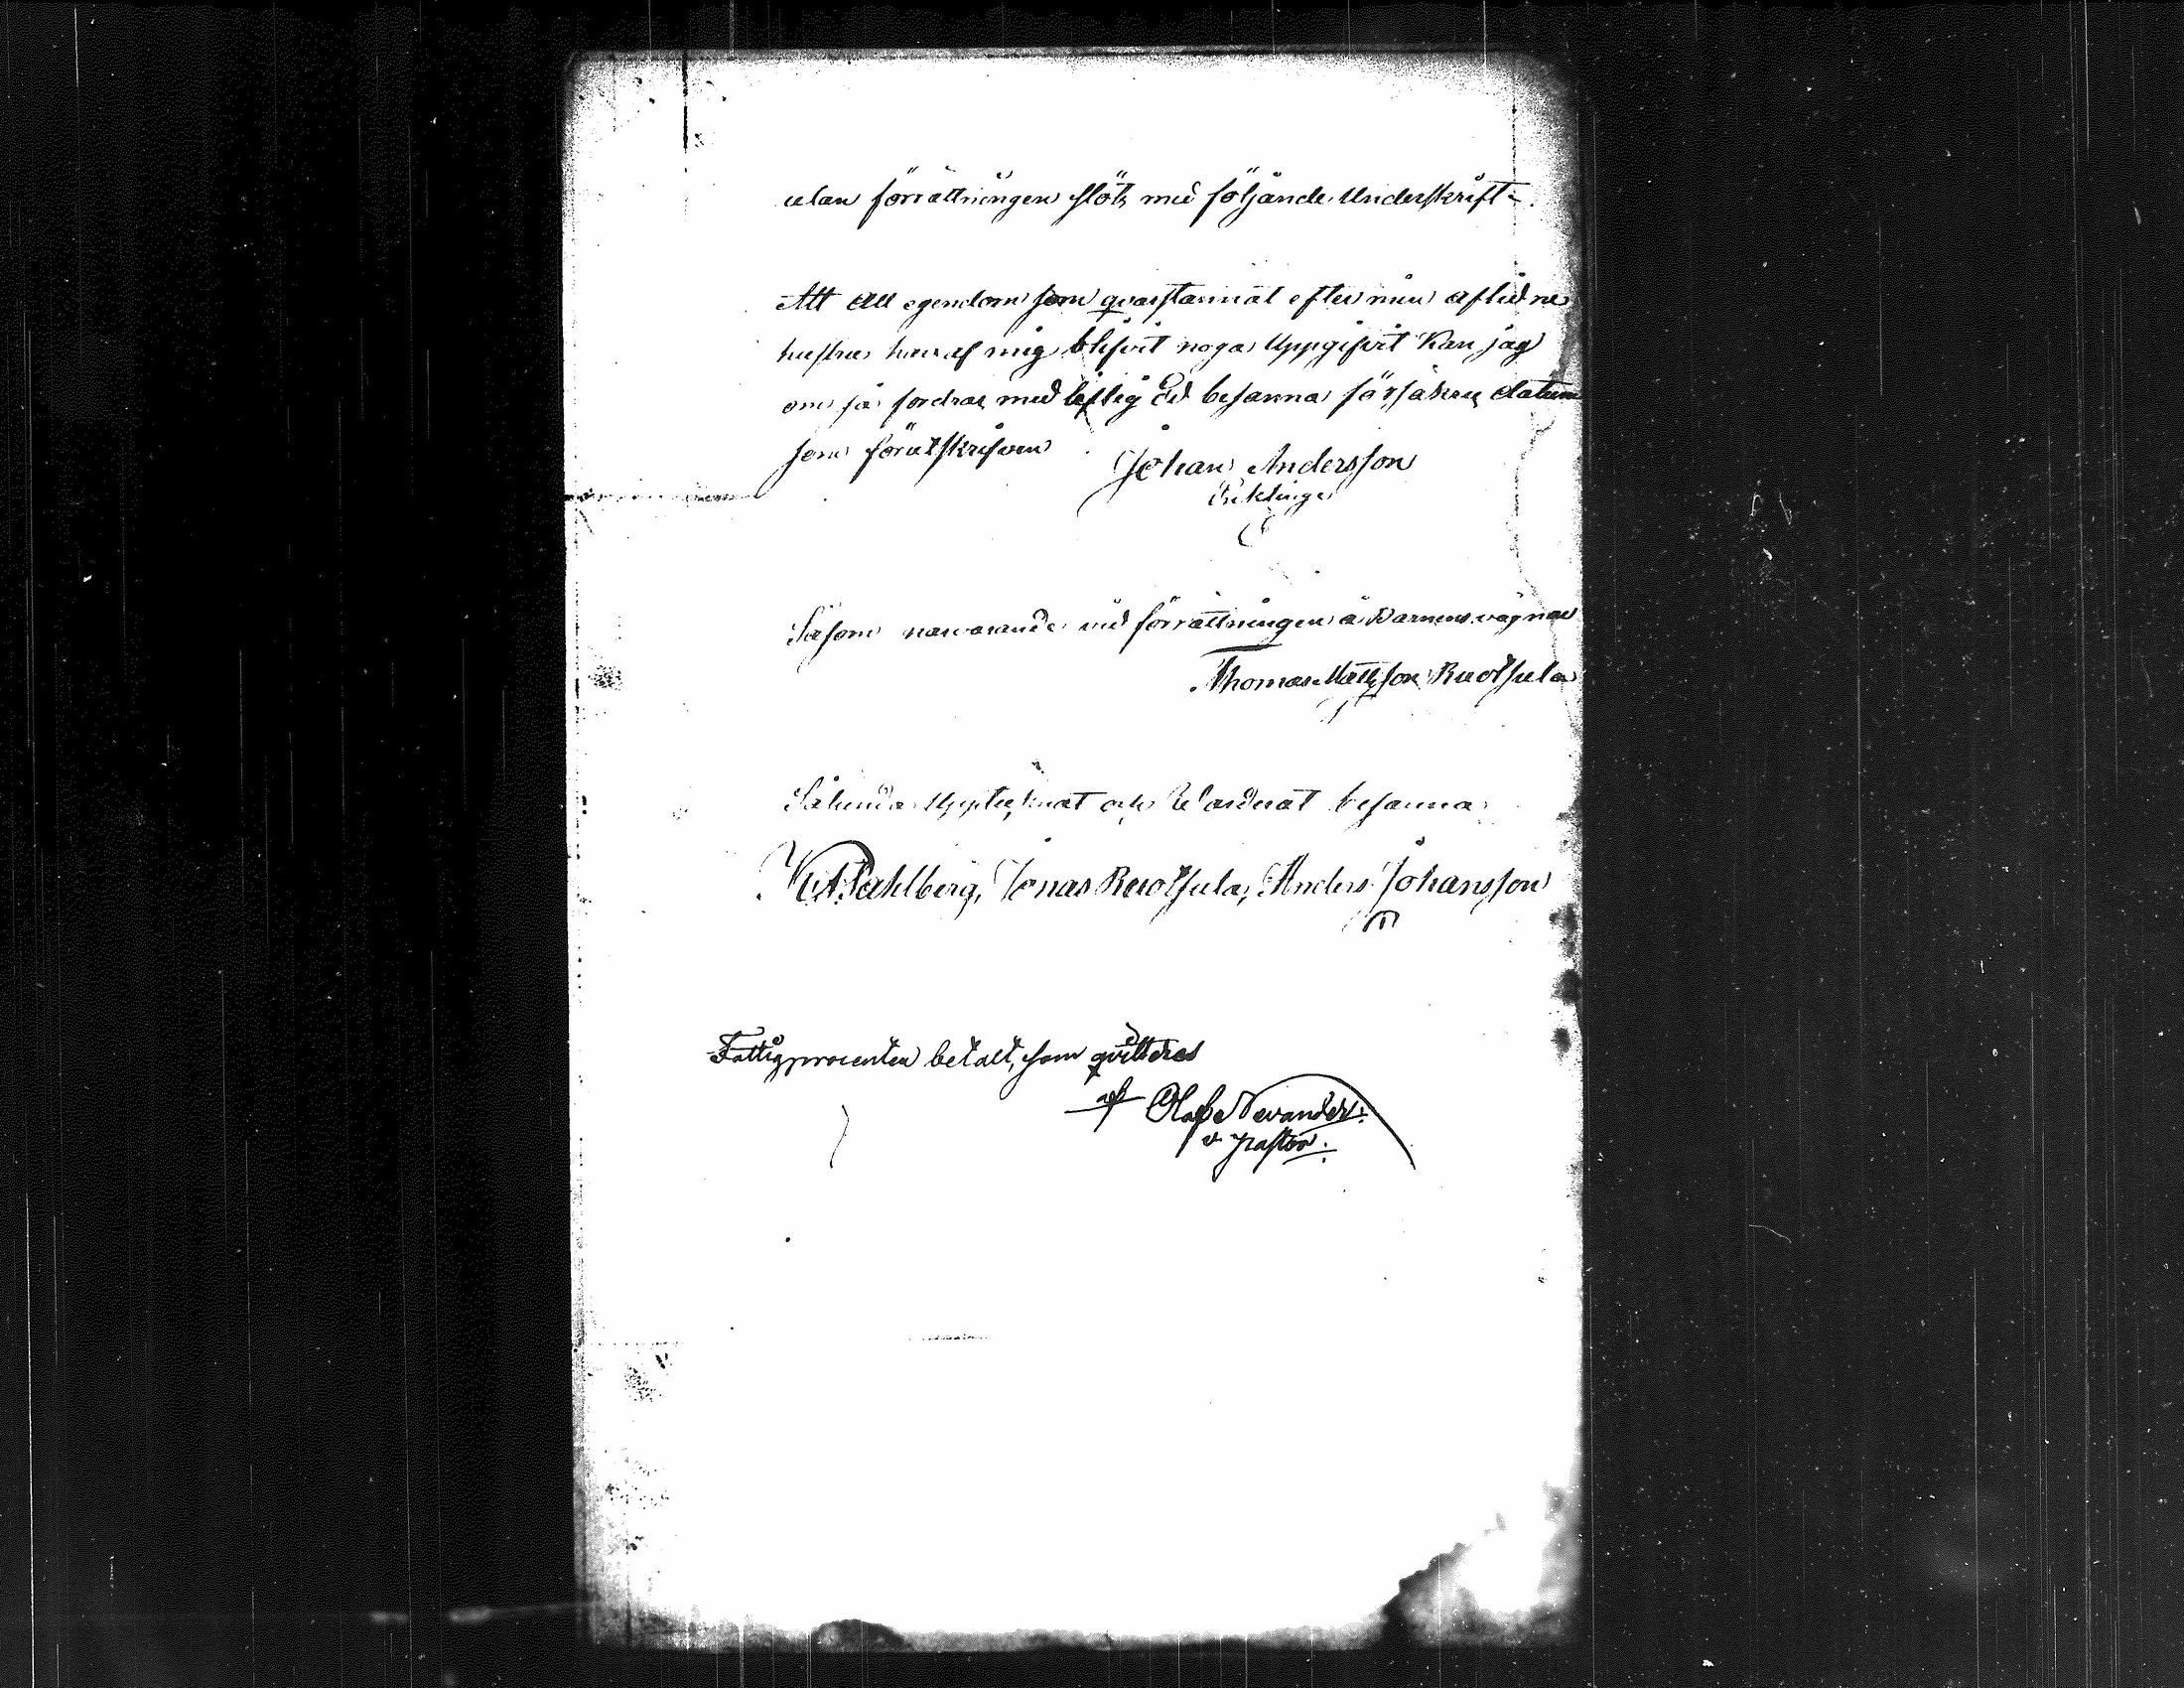 utan förrättningen slöts med följande Underskrift.
Att All egendom som qvarstannat efter min aflidne
hustru har af mig blifvit noga Uppgifvit kan jag
om så fordras med liflig Ed besanna försäkras datum
som förutskrifven
Johan Andersson
Såsom närvarande vid förrättningen å Barnens vägnar
Thomas Mattsson Ruotsula
Sålunda Upptecknat och Wärderat besanna
Wahlberg, Jonas Ruotsula, Anders Johansson
Fattigprocenten betalt, som qvitteras
af Olof Nevander.
v. pastor.